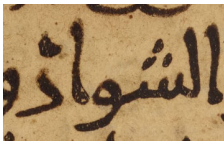 الشواذ